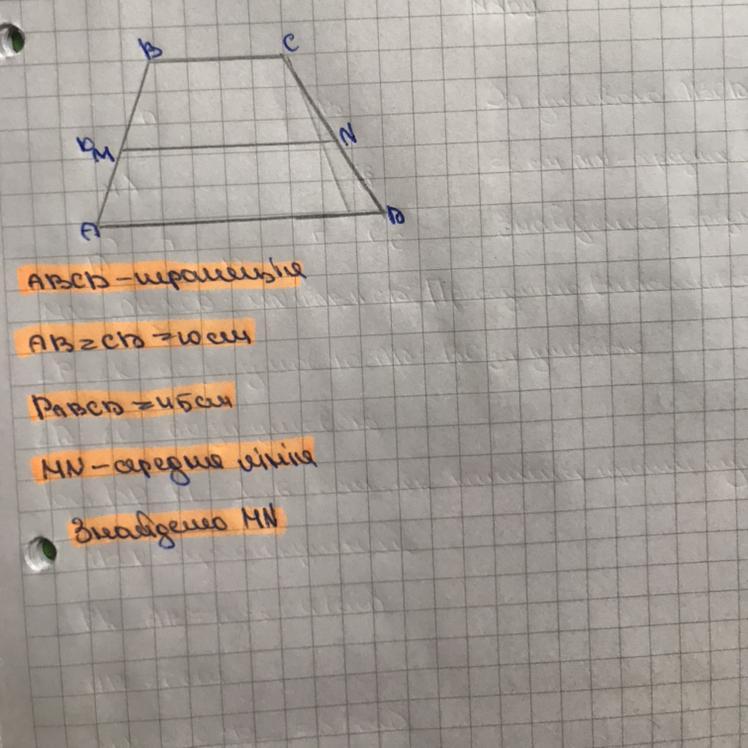 B C
M N
A D
ABCD - трапеція
AB = CD = 10 см
PABCD = 45 см
MN - середня лінія
Знайдемо MN